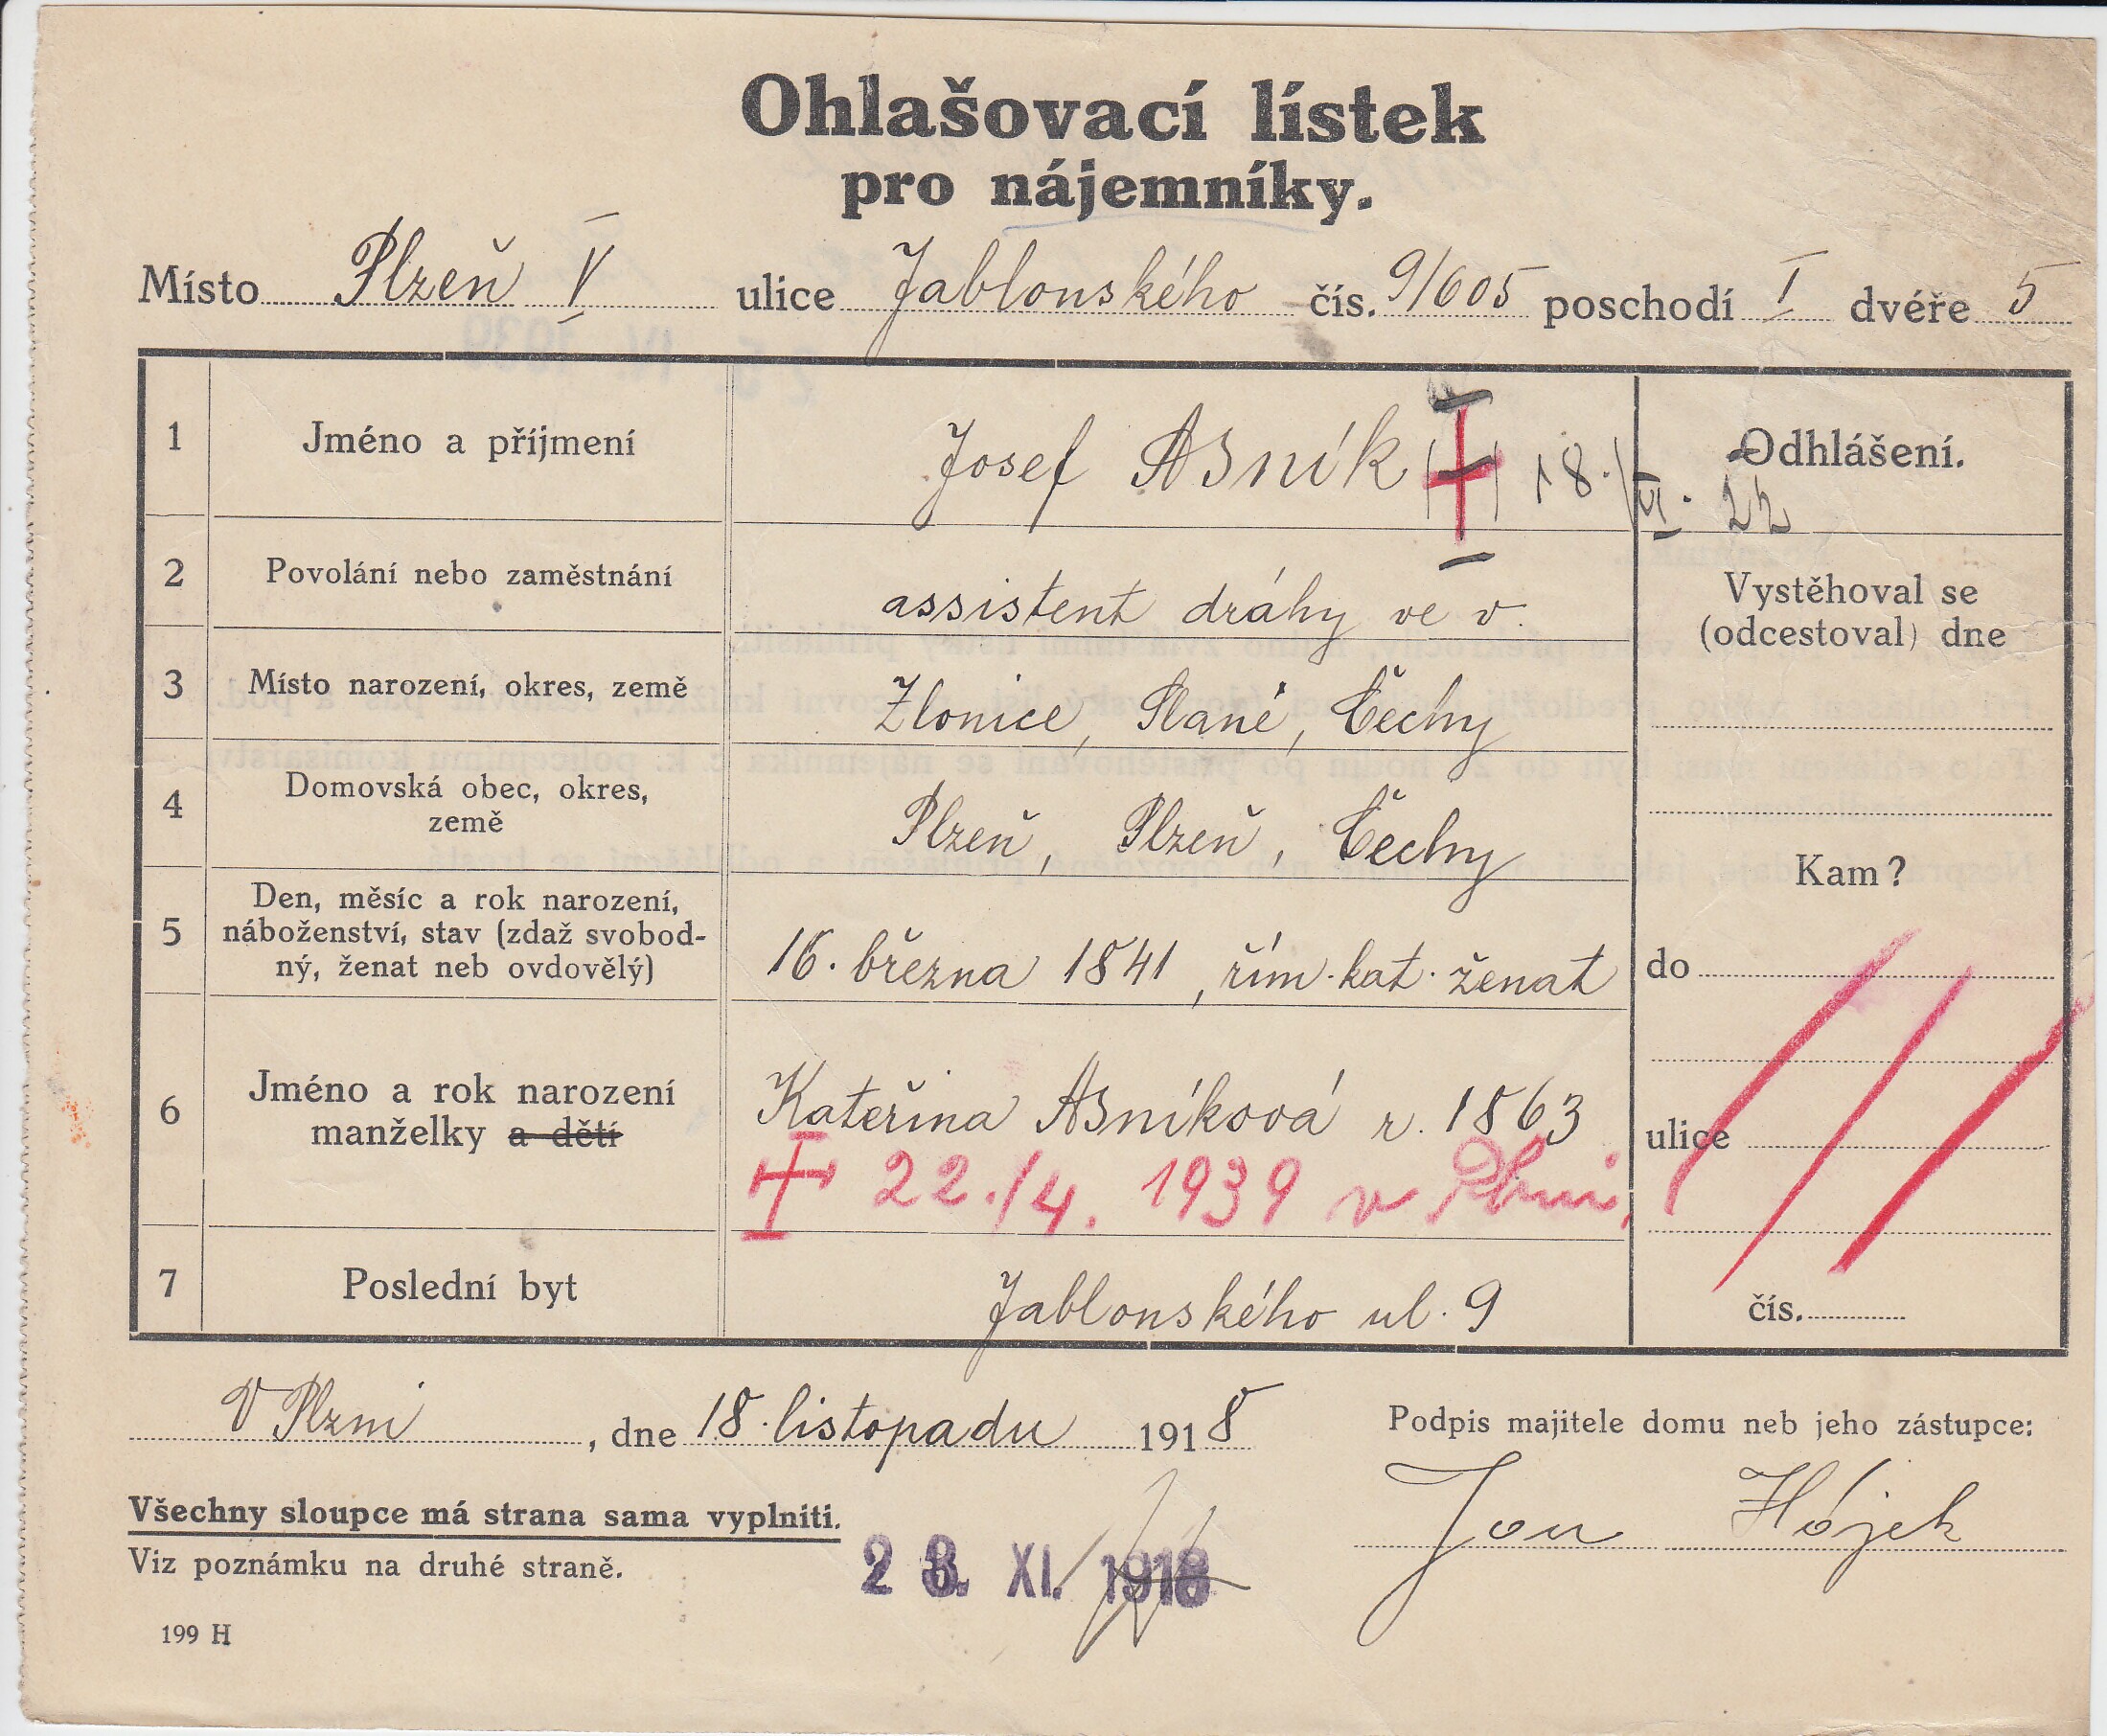 Ohlašovací lístek
pro nájemníky.
Místo Plzeň V ulice Jablonského čís. 9/605 poschodí I dvéře 5
1 Jméno a příjmení Josef Asník 18./VI. 22 Odhlášení.
2 Povolání nebo zaměstnání assistent dráhy ve v.
Vystěhoval se
(odcestoval) dne
3 Místo narození, okres, země Zlonice, Slané, Čechy
4 Domovská obec, okres,
země
Plzeň, Plzeň, Čechy
Kam?
5 Den, měsíc a rok narození,
náboženství, stav (zdaž svobod-
ný, ženat neb ovdovělý)
16. března 1841, řím. kat. ženat
do
6 Jméno a rok narození
manželky a dětí
Kateřina Asníková r. 1863
22./4. 1939 v Plzni,
ulice
7 Poslední byt Jablonského ul. 9
čís.
V Plzni, dne 18. listopadu 1918
Podpis majitele domu neb jeho zástupce:
Jan Hájek
Všechny sloupce má strana sama vyplniti.
Viz poznámku na druhé straně.
23. XI. 1918
199 H